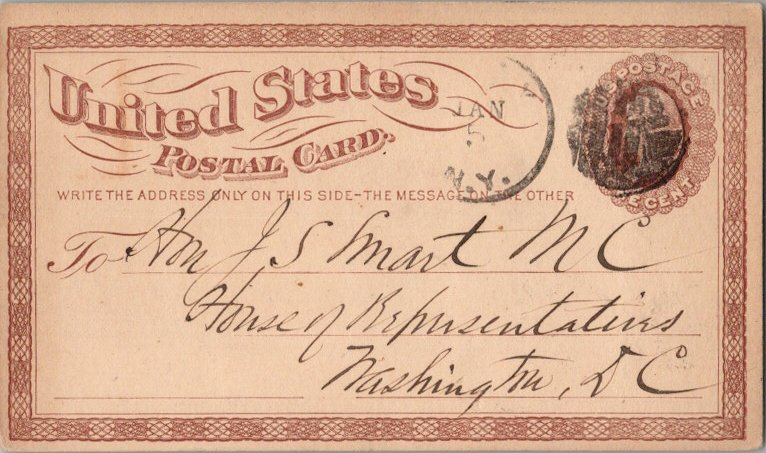 United States
Postal Card.
WRITE THE ADDRESS ONLY ON THIS SIDE-THE MESSAGE ON THE OTHER
JAN
5
N.Y.
U.S. POSTAGE
ONE CENT
To Hon J S Smart M C
House of Representatives
Washington, D C